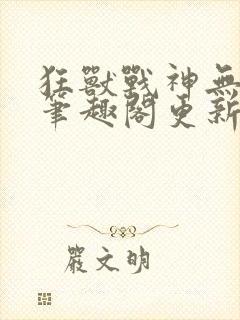 狂獸戰神無
筆趣閣更新
嚴文明